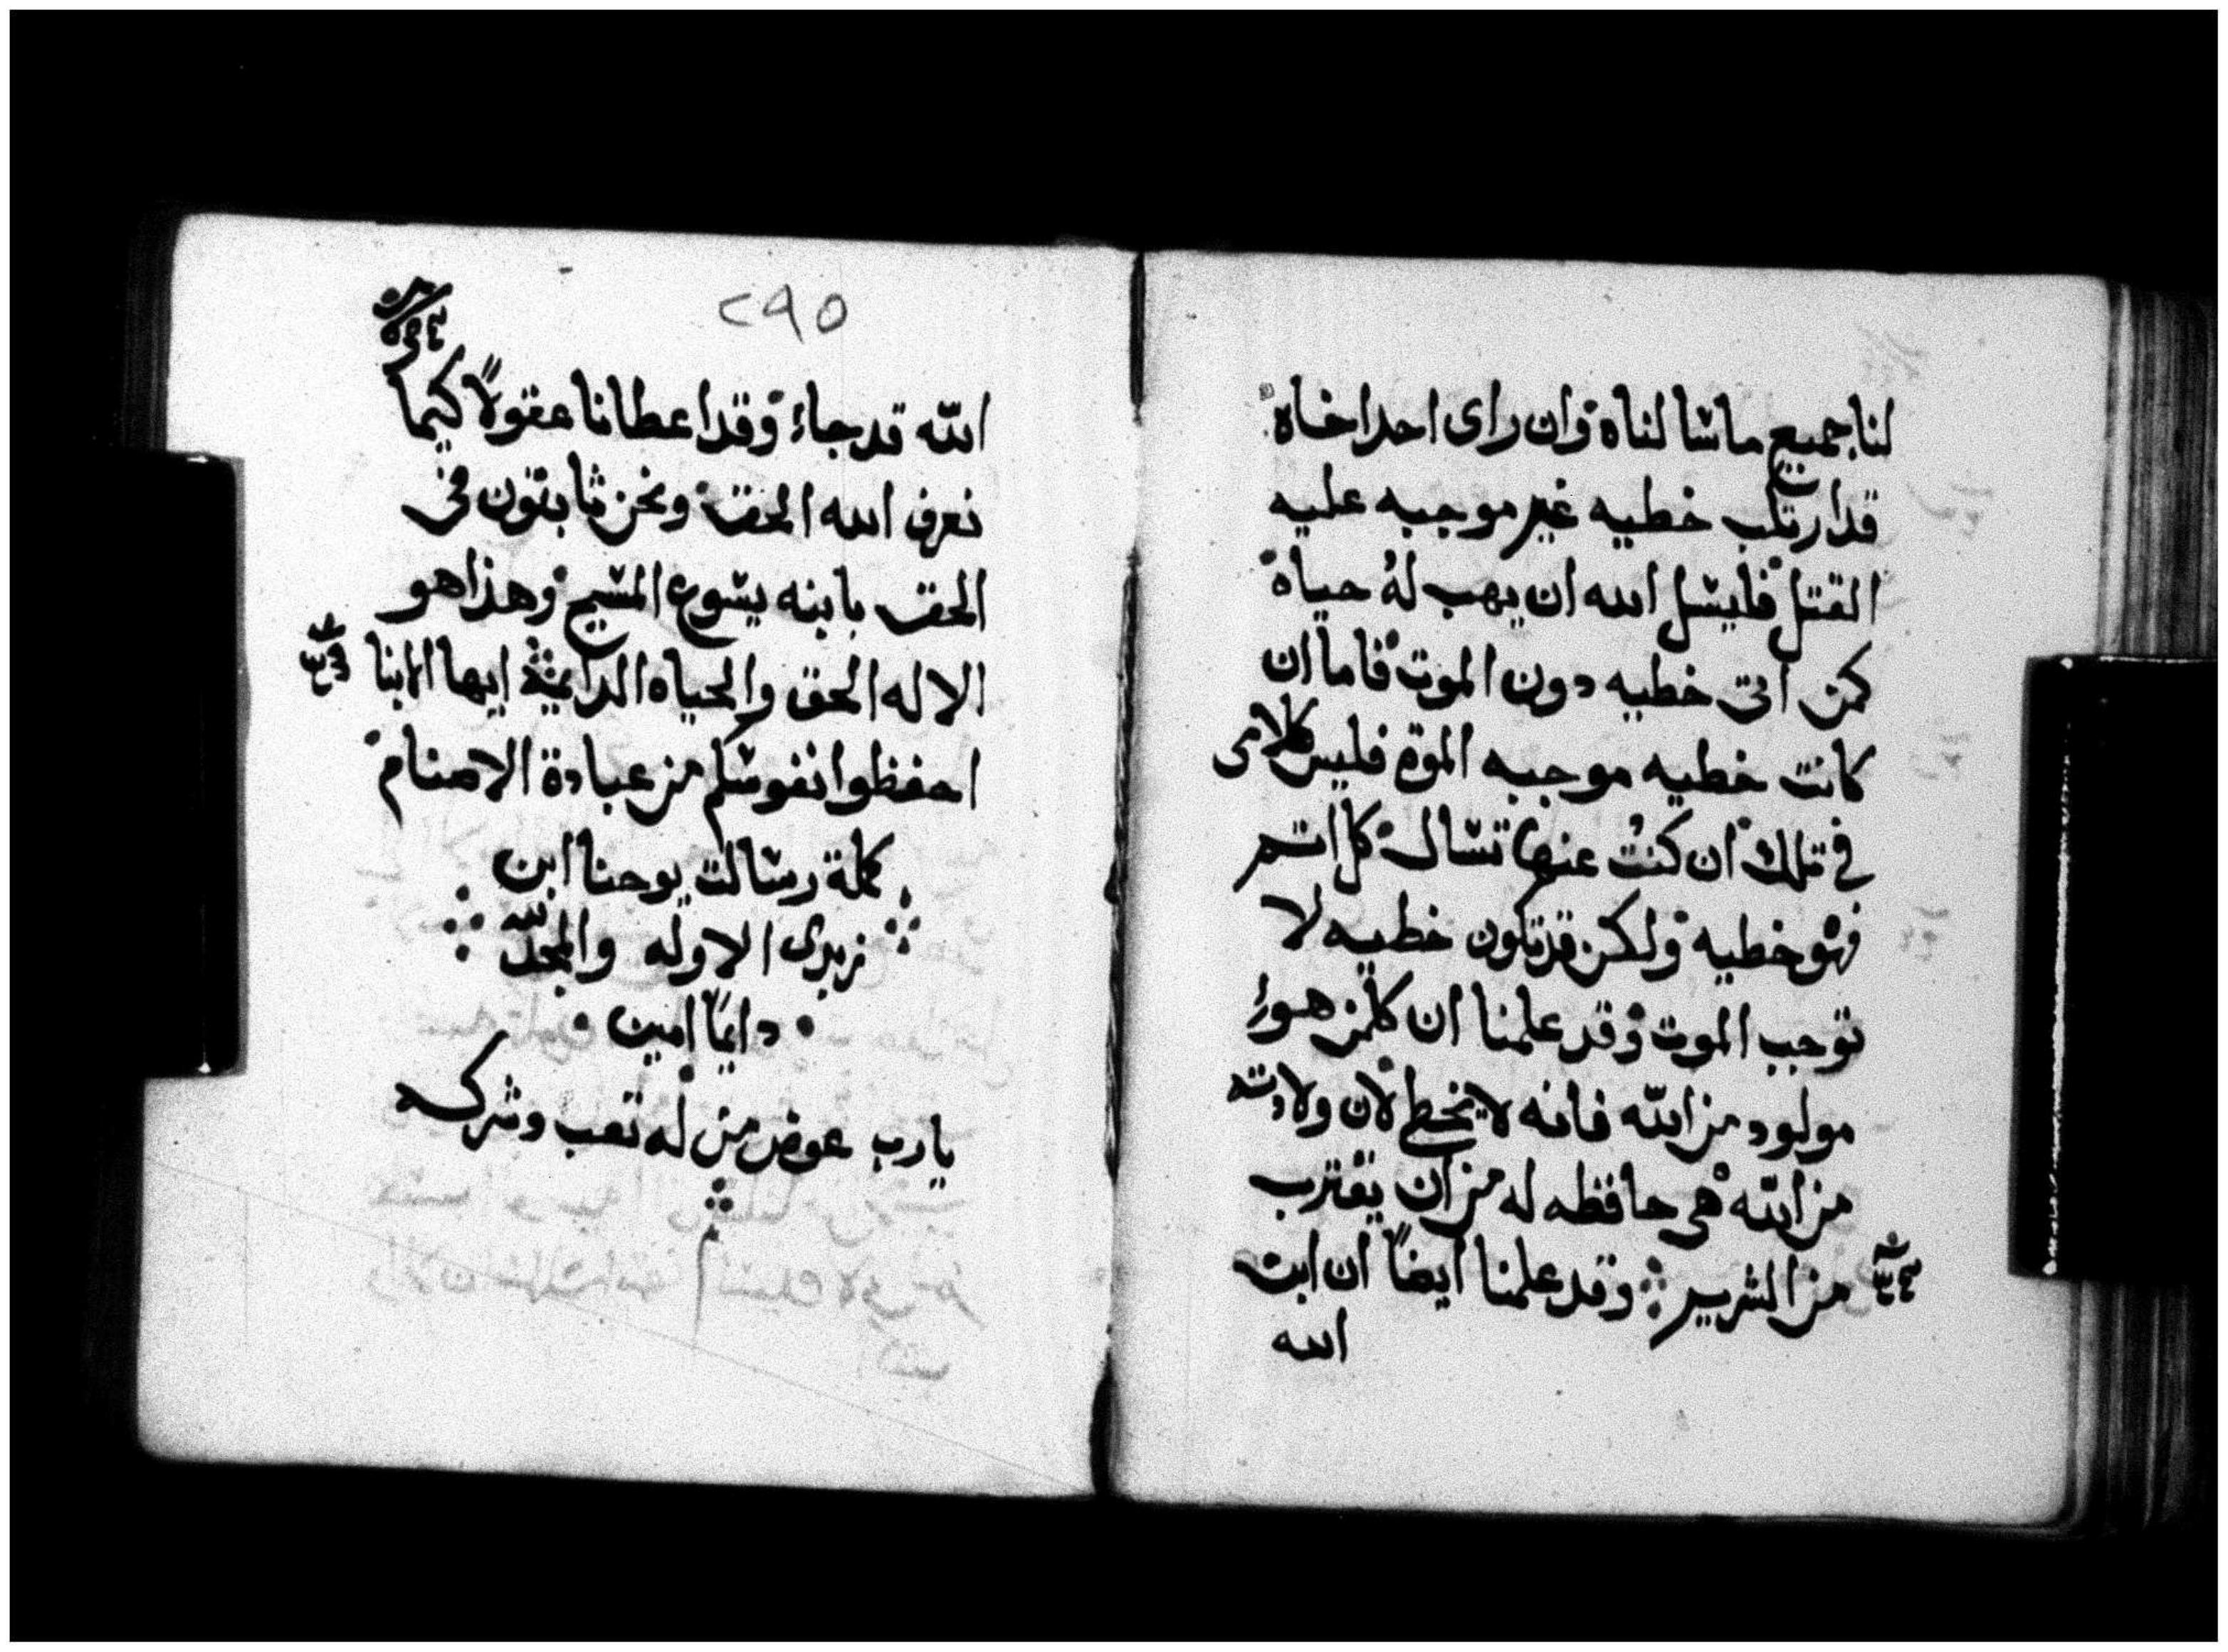 لنا جميع ما سالناه وان راى احدا خاه
قد ارتكب خطيه غير موجبه عليه
القتل فليسل الله ان يهب له حياة
كمن اتى خطيه دون الموت فاما ان
كانت خطيه موجبه الموت فليس كلامى
في تلك ان كنت عنها تسال كل اتم
فهو خطيه ولكن قد تكون خطيه لا
توجب الموت وقد علمنا ان كلمن هو
مولود من الله فانه لا يخطى لان ولادته
من الله هى حافظه له من ان يقترب
من الشرير وقد علمنا ايضاً ان ابن
الله
٢٩٥
الله قد جاء وقد اعطانا عقولاً كيما
نعرف الله الحق ونحن ثابتون في
الحق بابنه يسوع المسيح وهذا هو
الاله الحق والحياه الدايمة ايها الابنا
احفظوا نفوسكم من عبادة الاصنام
كملة رسالت يوحنا ابن
زبدى الاوله والمجد لله
دايمًا امين
يا رب عوض من له تعب وشركه